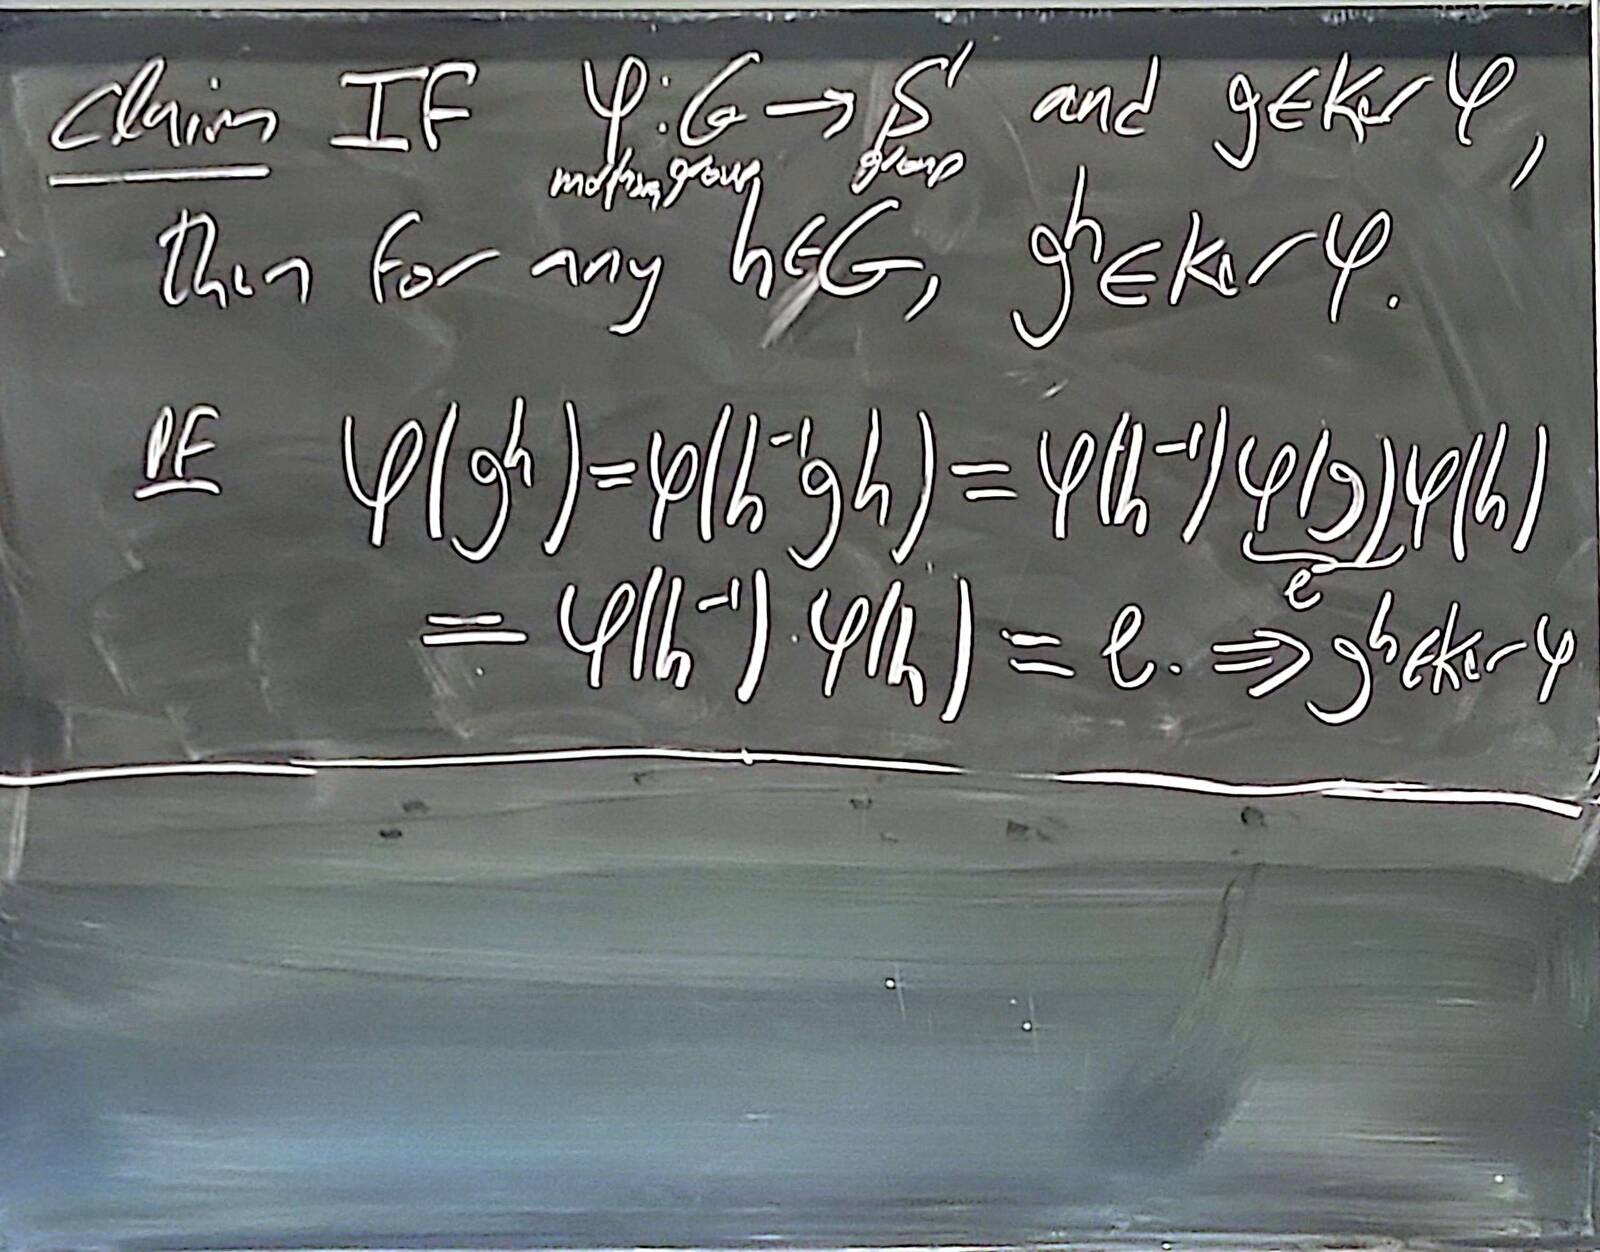 Claim IF φ: G → S' and g ∈ Ker φ,
group group
then for any h ∈ G, g^h ∈ Ker φ.
PF φ(g^h) = φ(h^-1 g h) = φ(h^-1) φ(g) φ(h)
e
= φ(h^-1) · φ(h) = e. ⇒ g^h ∈ Ker φ